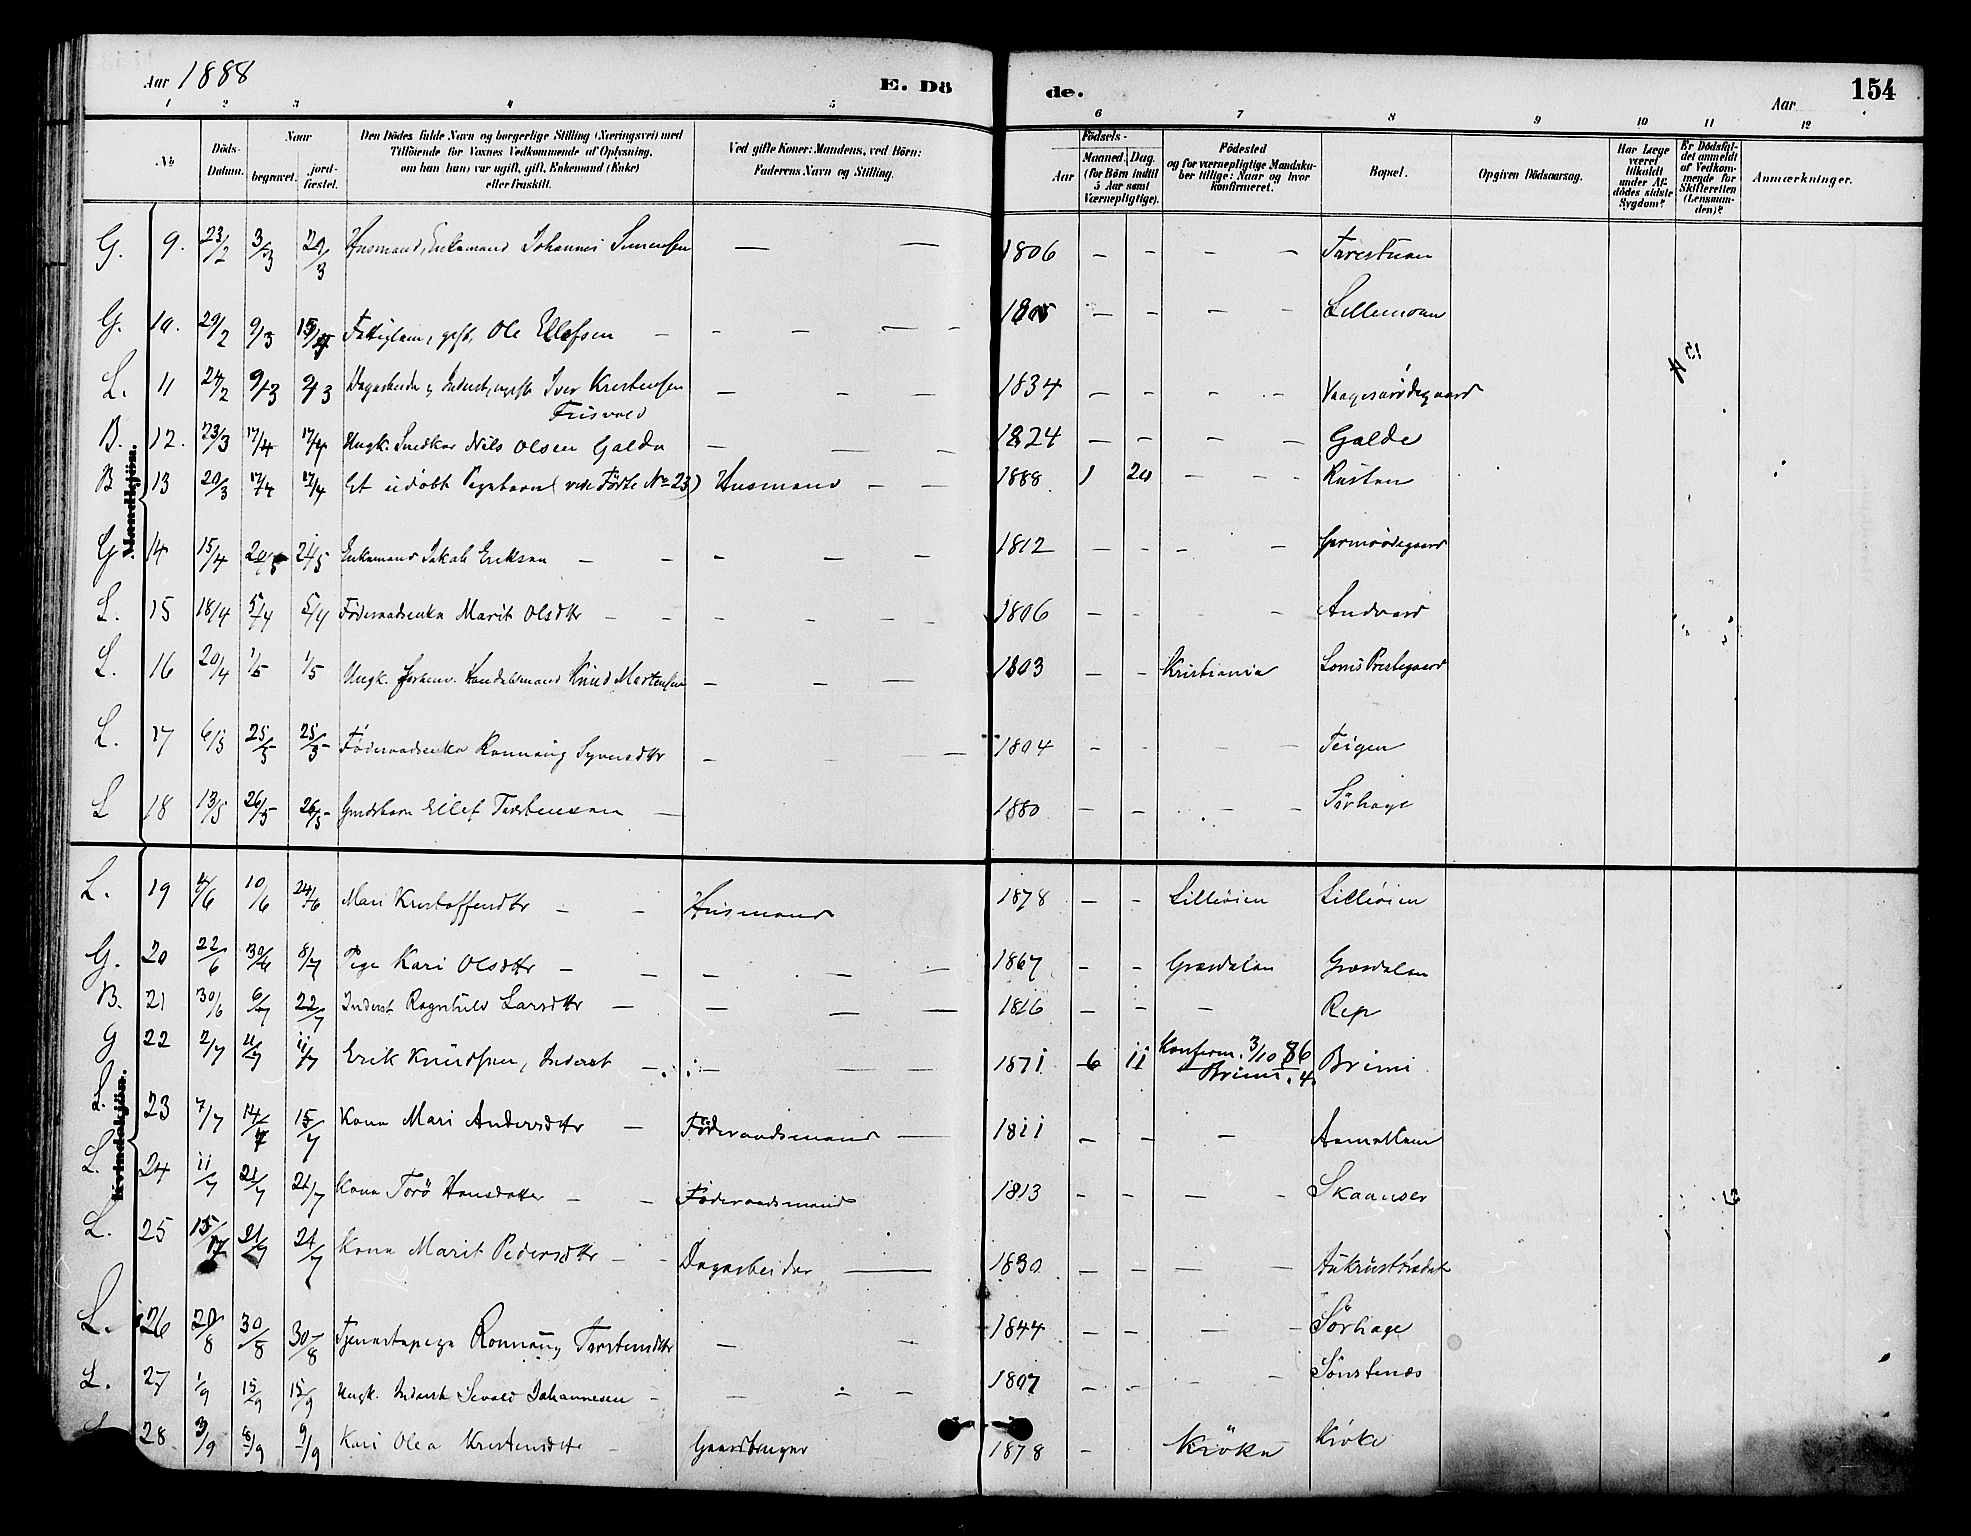 Aar 1888 E. Dö de. Aar 154
1 2 3 4 5 6 7 8 9 10 11 12
№ Döds-Datum. Naar begravet. jord-fæstet. Den Dödes fulde Navn og borgerlige Stilling (Næringsvei) med Tilföiende for Voxnes Vedkommende af Oplysning, om han (hun) var ugift, gift, Enkemand (Enke) eller fraskilt. Ved gifte Koner: Mandens, ved Börn: Faderens Navn og Stilling. Födsels- Aar Maaned. Dag. (for Börn indtil 5 Aar samt Værnepligtige). Födested og for værnepligtige Mandskaber tillige: Naar og hvor konfirmeret. Bopæl. Opgiven Dödsaarsag. Har Læge været tilkaldt under Afdödes sidste Sygdom? Er Dödsfaldet anmeldt af Vedkommende for Skifteretten (Lensmanden)? Anmærkninger.
Mandkjön.
G. 9. 23/2 3/3 Husmand, Enkemand Johannes Simensen — — 1806 – – – – 
G. 10. 29/2 9/3 Fattiglem, gift, Ole Ellefsen – – – – – – – – – Lillemoen
L. 11 24/2 9/3 9/3 Iver Kristensen – – – 1834 – – – –
B. 12. 23/3 17/4 17/4 Ungk. Snedker Nils Olsen Galde – – – 1824 – – – – Galde
B 13 20/3 17/4 17/4 Et udöbt Pigebarn (vide Födte No 23) Husmand – – 1888 1 20 – – – Rusten
G 14 15/4 Enkemand Jakob Eriksen – – – – – 1812 – – – –
L. 15 18/4 5/4 5/4 Föderaadsenke Marit Olsdtr – – – – – 1806 – – – Andvord
L. 16 20/4 1/5 1/5 Ungk. forhenv. Handelsmand Knud Mortensen – – – 1803 – – Kristiania Loms Prestegaard
L. 17 6/5 25/5 25/5 Föderaadsenke Ronnaug Syversdtr – – 1804 – – – – Teigen
L 18 13/5 26/5 26/5 Ellef Torstensen – 1880 – – – – Sörhage
Kvindekjön.
L. 19 10/6 24/6 Mari Kristoffersdtr – – Husmand 1878 – – Lilleöien Lilleöien
G. 20 22/6 30/6 8/7 Pige Kari Olsdtr – – – – – 1867 – – Grøsdalen Grøsdalen
B. 21 30/6 6/7 22/7 Inderst Ragnhild Larsdtr – – – – 1816 – – – Rep
G 22 2/7 11/7 Erik Knudsen, Inderst – – – – 1871 6 11 Konfirm. 3/10 86 Brimi. 4 Brimi
L. 23 7/7 14/7 15/7 Kone Mari Andersdtr – Föderaadsmand – 1811 – – –
L. 24 11/7 21/7 21/7 Kone Torö Hansdatter – – Föderaadsmand 1813 – – – – Skaanser
L. 25 15/7 21/7 21/7 Kone Marit Pedersdtr – – Dagarbeider — 1830 – – – –
L. 26 20/8 30/8 30/8 Tjenestepige Ronnaug Torstensdtr – – 1844 – – – – Sörhage
L. 27 1/9 15/9 15/9 Ungk. Inderst Sevald Johannesen – – – – 1807 – – – – Sönstenæs
28 3/9 9/9 Kari Olea Kristensdtr – Gaardbruger 1878 – Kröke Kröke